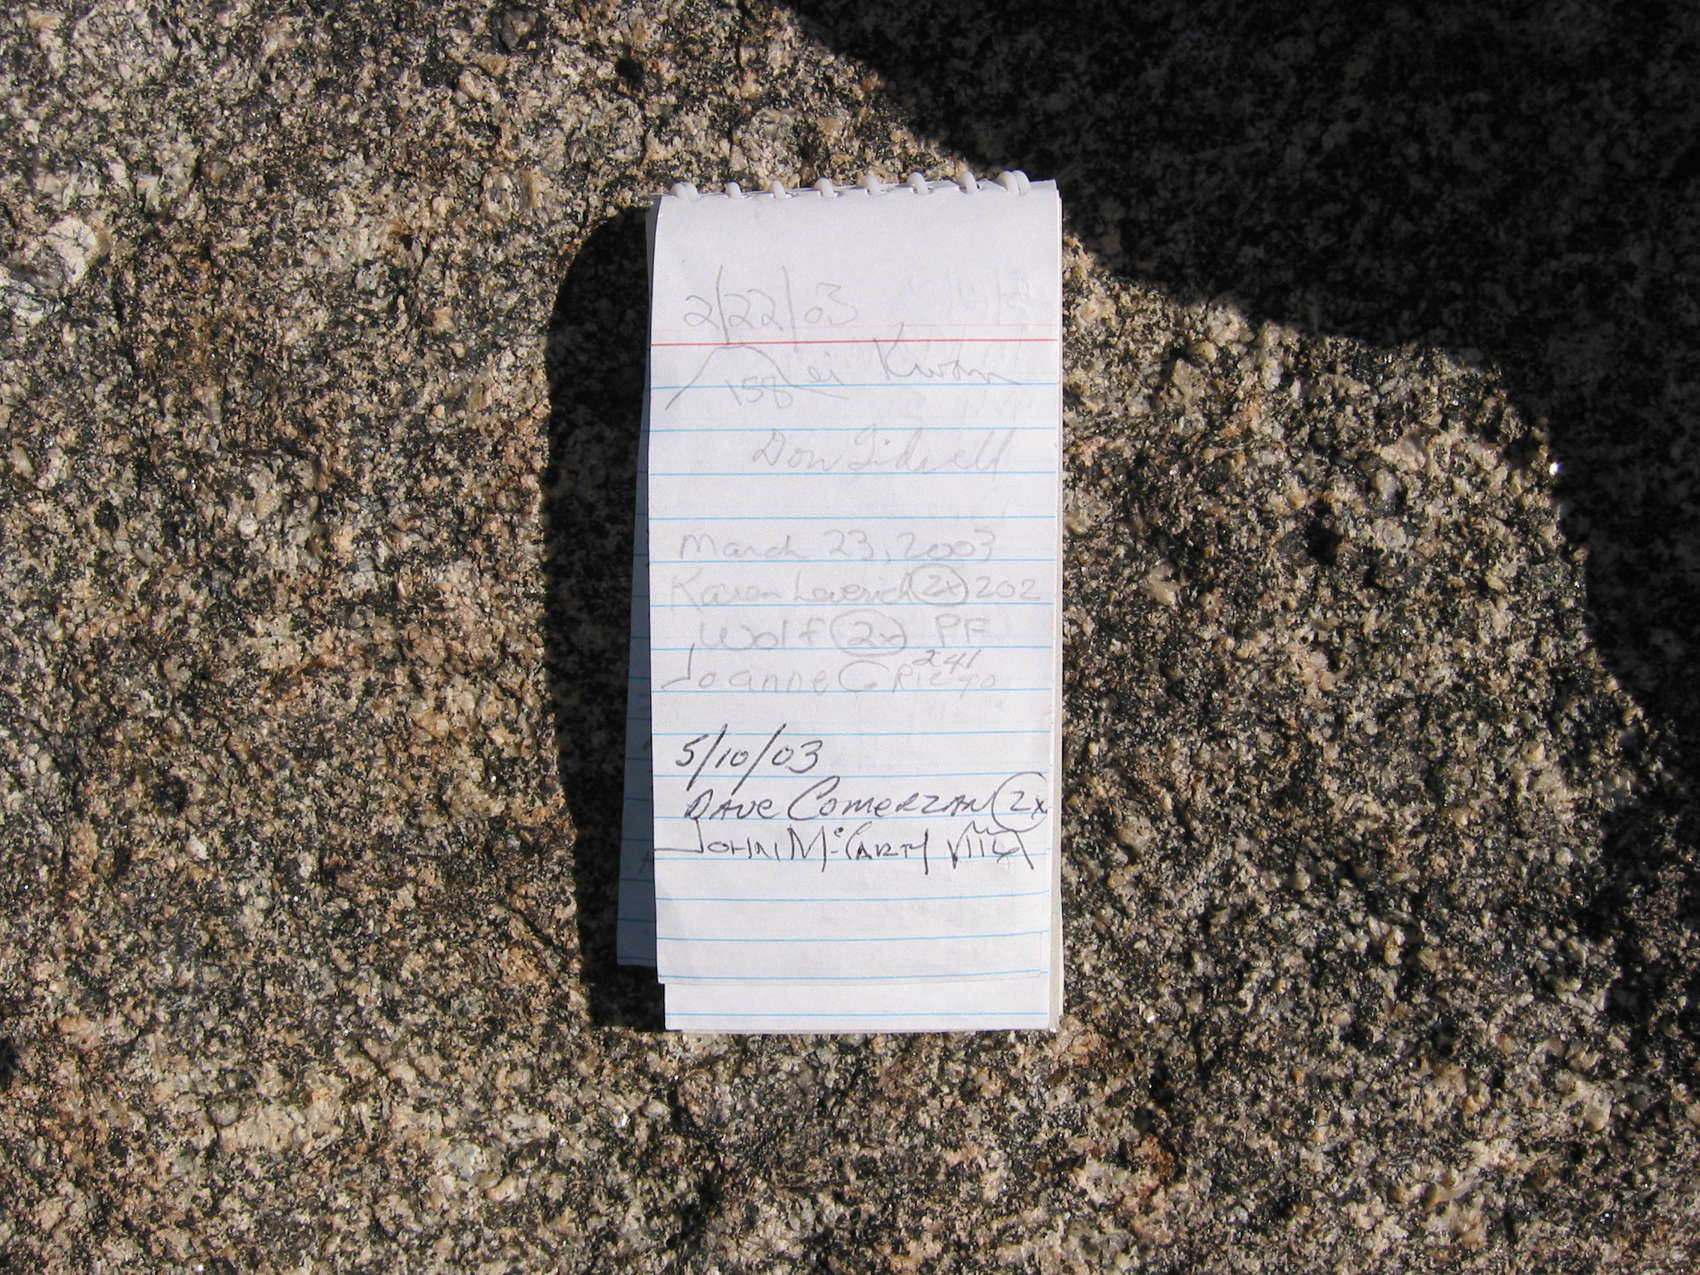 2/22/03
158 ei Kwan
Don Tidwell
March 23, 2003
Karen Leverich 2x 202
Wolf 2x PF
241
Joanne G
5/10/03
Dave Comerzan 2x
John McCarty